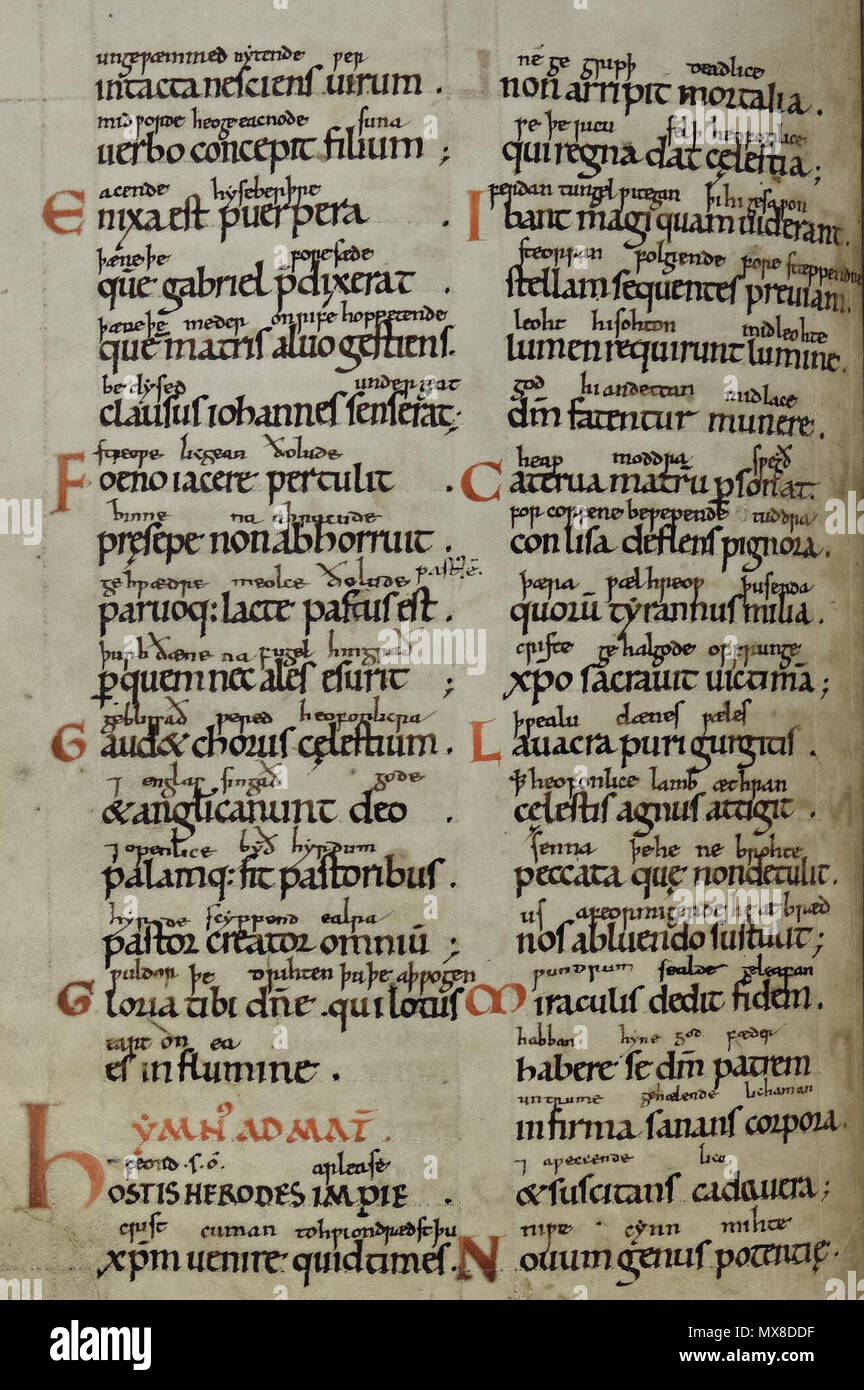 ungewæmmed nytende wer
intacta nesciens uirum .
mid worde heo geeacnode suna
uerbo concepit filium ;
acende hyseberþre
Enixa est puerpera .
þæne þe foresæde
quẽ gabriel p̃dixerat .
þæne þe meder on rife hoppetende
quem matris aluo gestiens.
beclysed undergæt
clausus iohannes senserat;
streowe licgean ðolude
Foeno iacere pertulit .
binne na
pręsepe non abhorruit .
meolce ðolude
paruoq: lacte pastus est .
þurh ðæne na fugel
ꝑ quem nec ales esurit ;
geblissað wered heofonlicra
Gaud& chorus cęlestium .
⁊ englas singað gode
& angeli canunt deo .
⁊ openlice byð hyrdum
palamq: fit pastoribus .
hyrde scyppend ealra
pastor creator omniũ ;
wuldor þe drihten þu þe aþwogen
Gloria tibi dñe . qui lotus
eart on ea
es in flumine .
hYMN' AD MAT̃ .
eala arlease
HOSTIS HERODES IMPIE .
crist cuman
xp̃m uenire quid times.
ne ge gripþ deadlice
non arripit mortalia .
se þe
qui regna dat cęlestia;
tungel witegan
Ibant magi quam uiderant.
steorran folgende forestæppendne
stellam sequentes preuiam.
leoht hi sohton mid leohte
lumen requirunt lumine.
god hi andettan mid lace
dm̃ fatentur munere.
heap moddra
Caterua matrũ ꝑsonat.
forcorfene bewepende tuddra
conlisa deflens pignora.
þæra wælhreow þusenda
quorũ tyrannus milia .
criste gehalgode
xpo sacrauit uictimã;
þwealu dænes wæles
Lauacra puri gurgitis .
þ heofonlice lamb æthran
cęlestis agnus attigit .
senna þe he ne brohte
peccata que non detulit.
us
nos abluendo sustulit;
wundrum sealde geleafan
Miraculis dedit fidem .
habban hyne god fæder
habere se dm̃ patrem
untrume gehælende lichaman
infirma sanans corpora.
⁊ aweccende lic
& suscitans cadauera;
niwe cynn mihte
Nouum genus potentię.
alamy
Image ID: MX8DDF
www.alamy.com